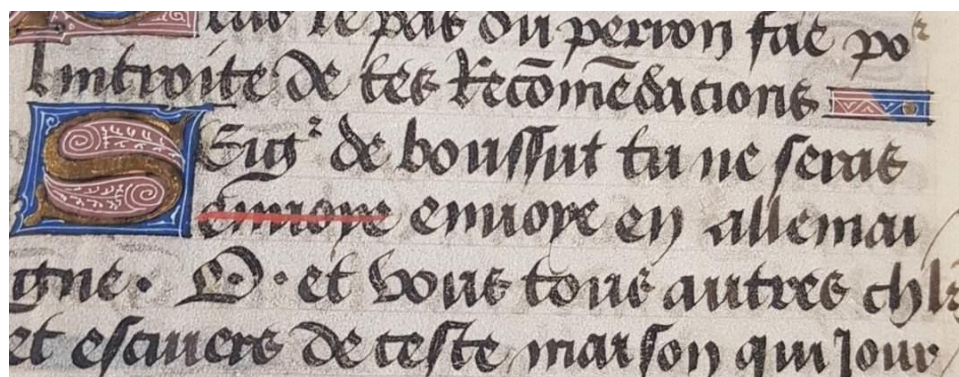 le pas du perron fac po^r
Lintroite de tes Recōmēdacions
SEig^r de boussut tu ne seras
enuoye enuoye en allemai
gne. O. et vous tous autres chlr̄s
et escuiers de ceste maison qui Jour